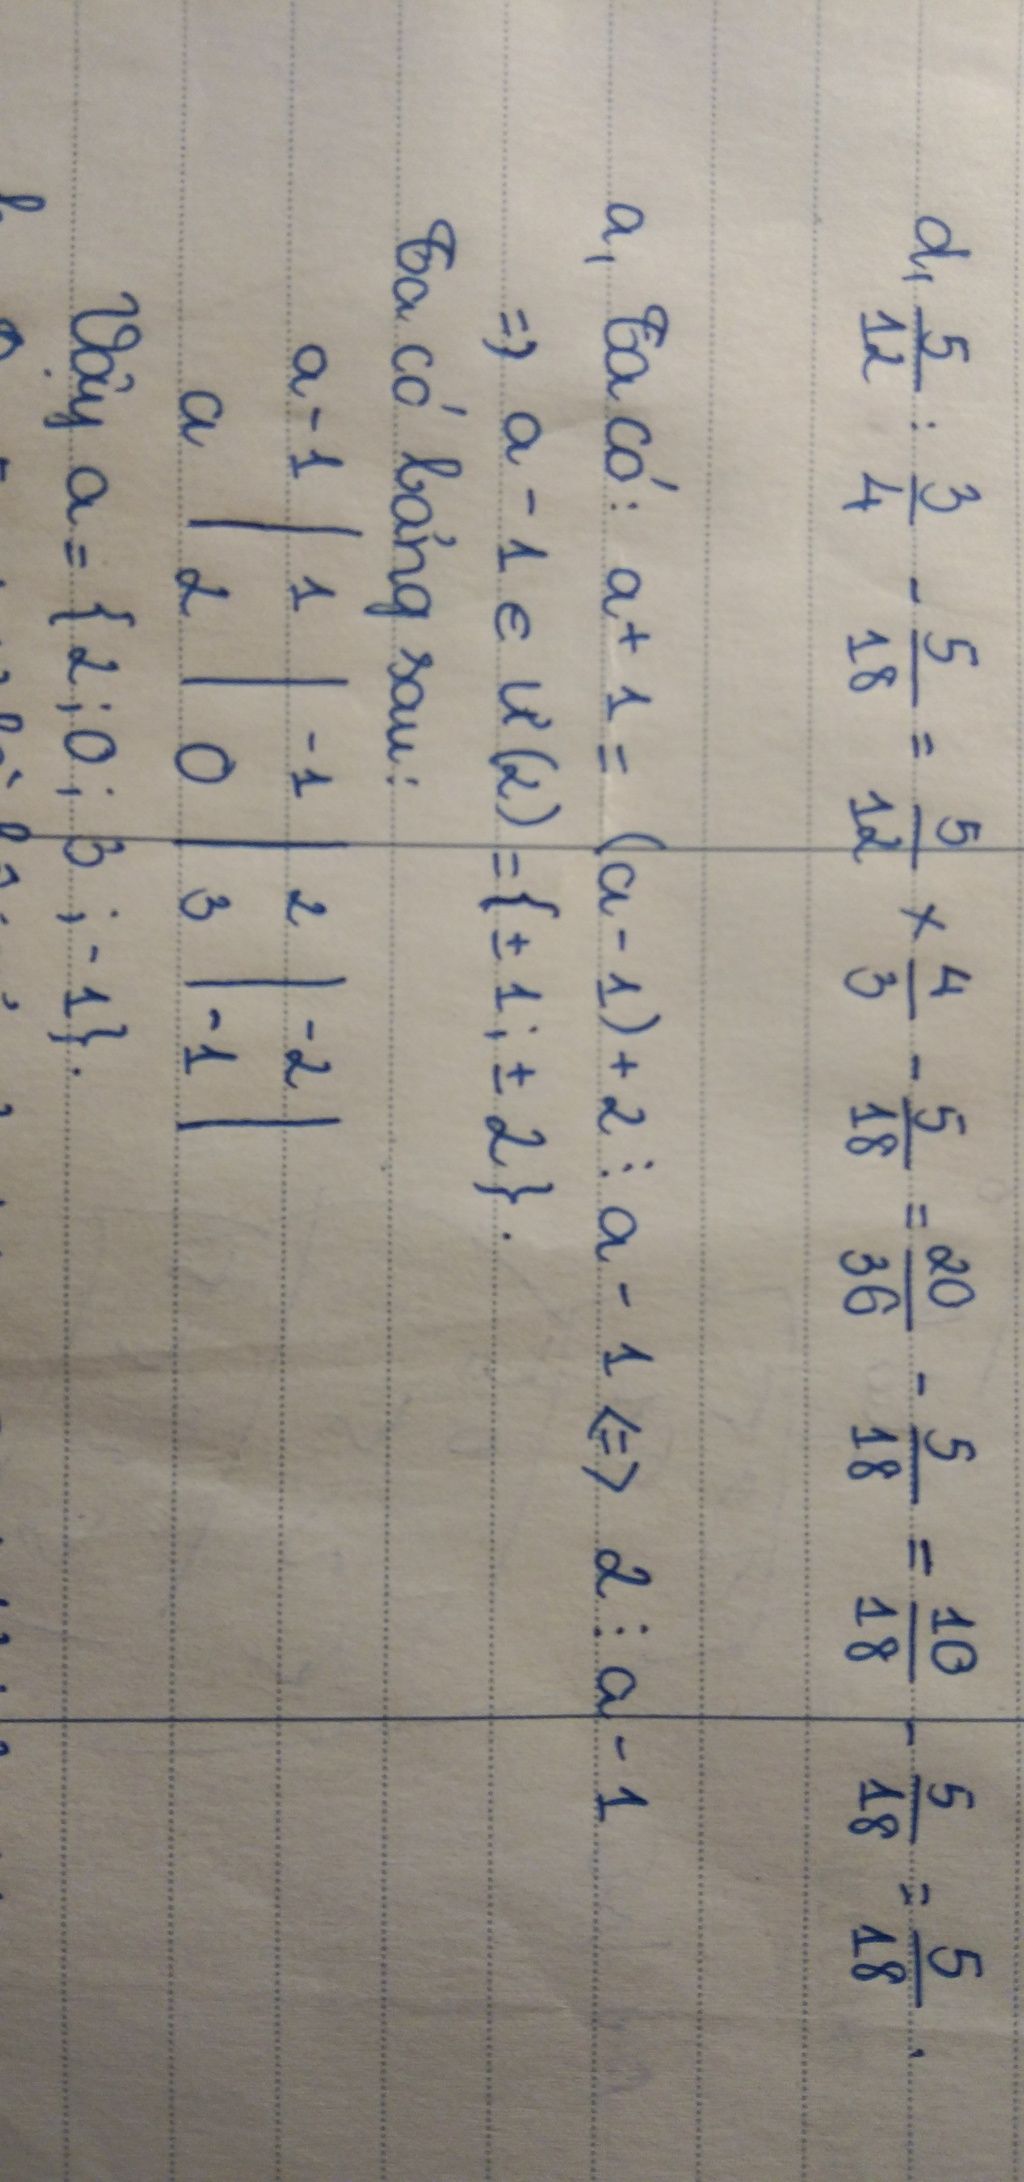 d, 5/12 : 3/4 - 5/18 = 5/12 × 4/3 - 5/18 = 20/36 - 5/18 = 10/18 - 5/18 = 5/18.
a, Ta có: a + 1 = (a - 1) + 2 ⋮ a - 1 <=> 2 ⋮ a - 1
=> a - 1 ∈ Ư(2) = {±1; ±2}.
Ta có bảng sau:
a - 1 | 1 | -1 | 2 | -2 |
a | 2 | 0 | 3 | -1 |
Vậy a = {2; 0; 3; -1}.